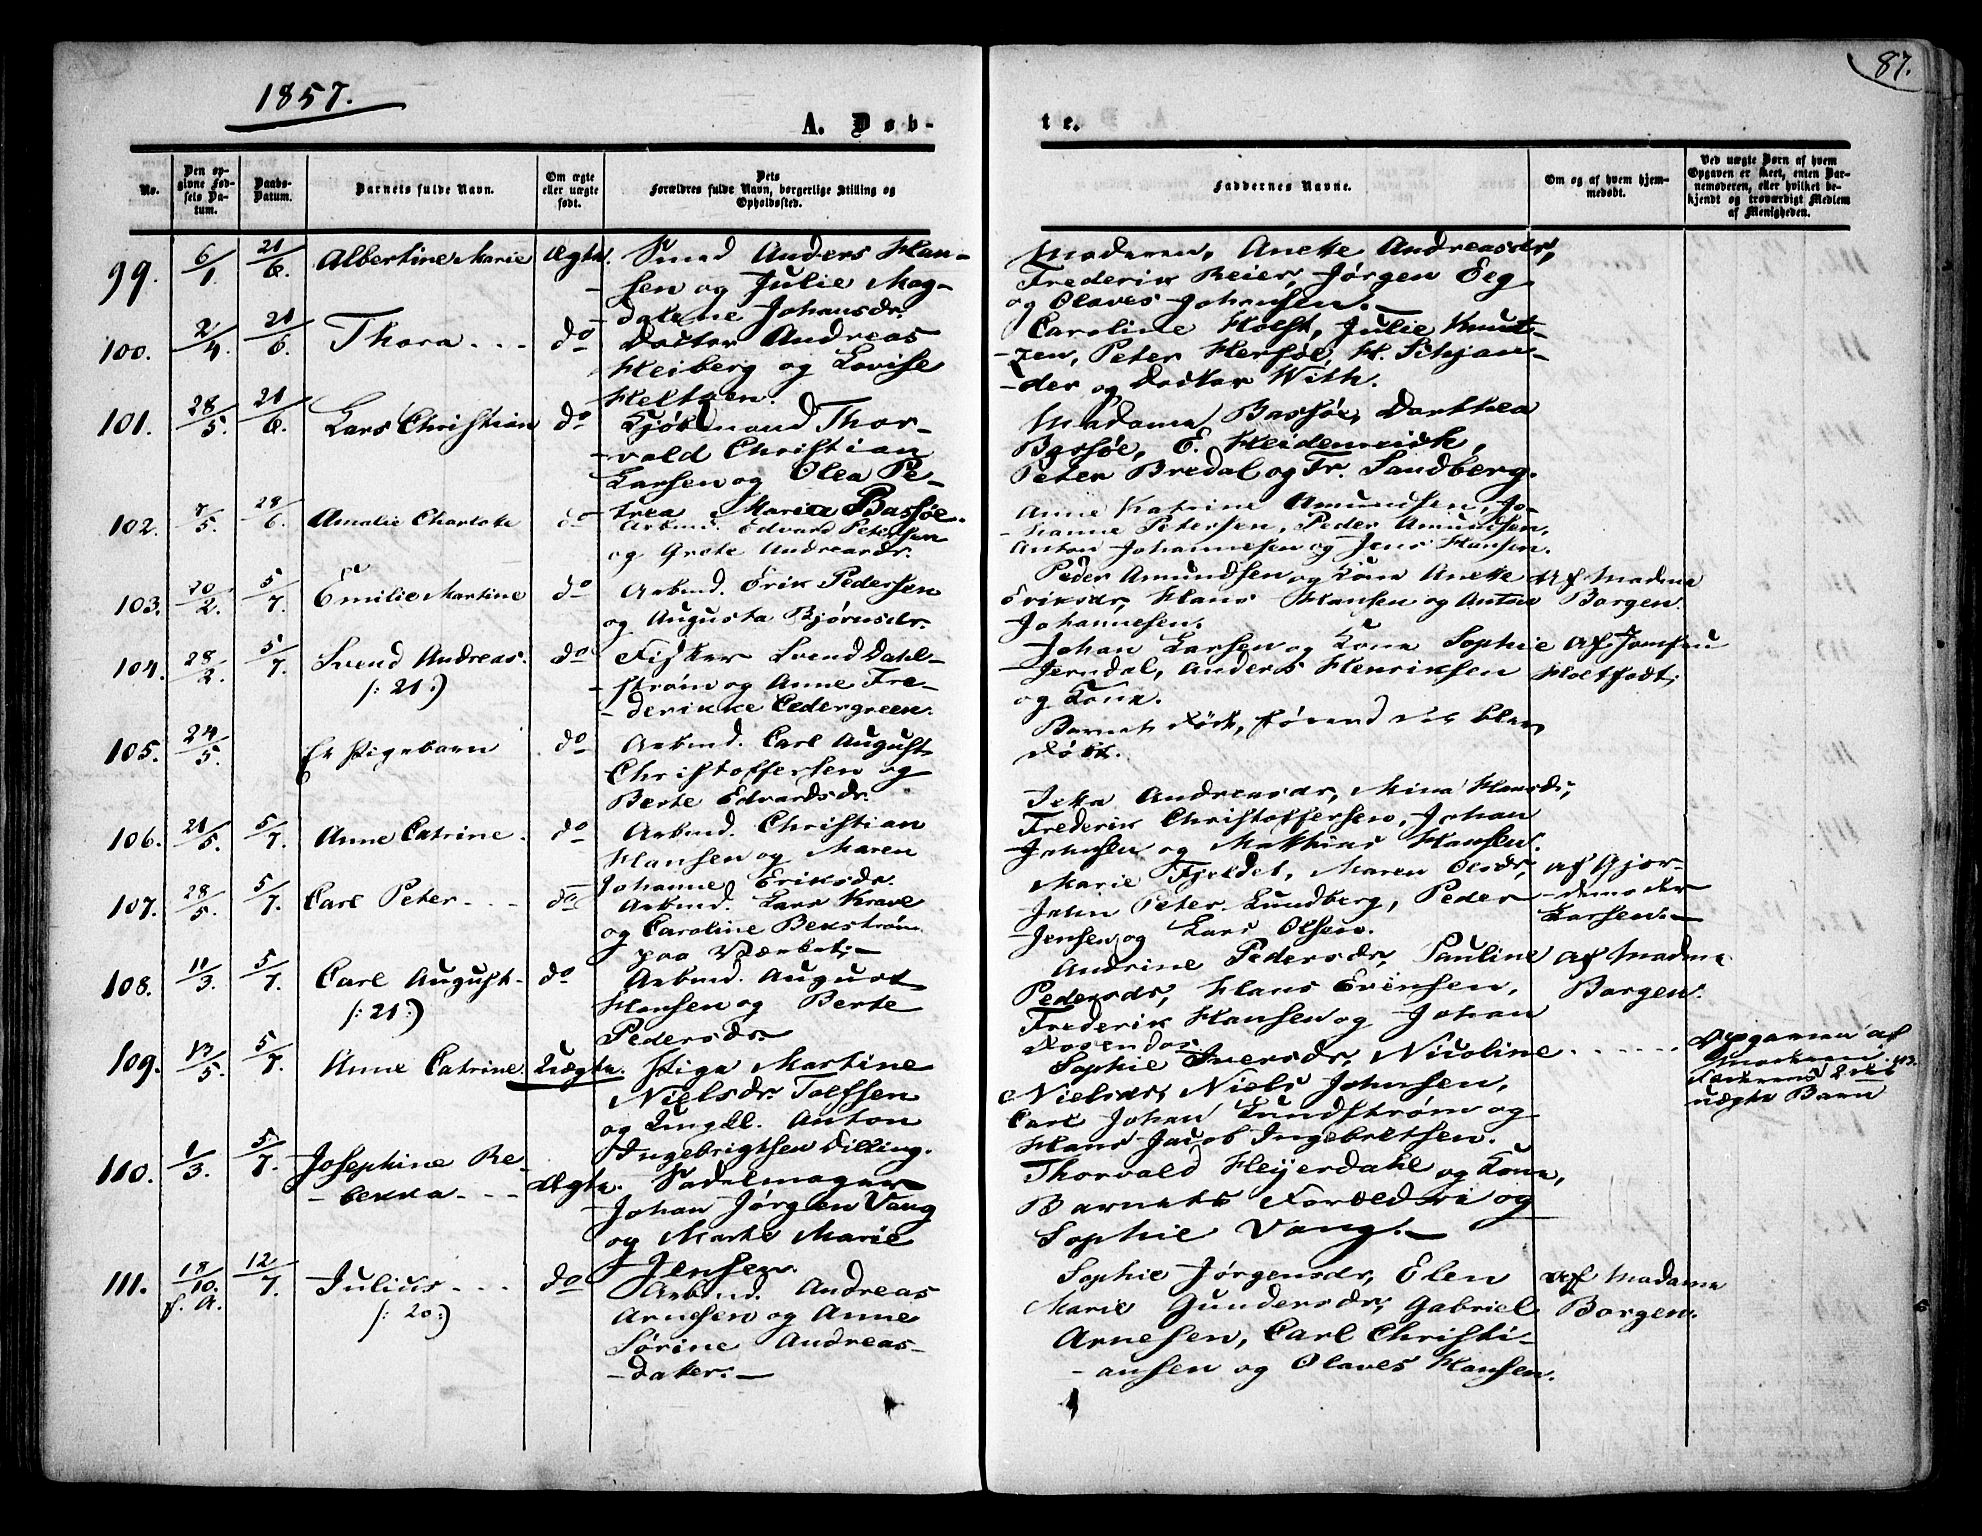 1857.
87.
A. Døb-
te.
No.
Den op-
givne Fød-
sels Da-
tum.
Daabs-
Datum.
Barnets fulde Navn.
Om ægte
eller uægte
født.
Dets
Forældres fulde Navn, borgerlige Stilling og
Opholdssted.
Faddernes Navne.
Om og af hvem hjem-
medøbt.
Ved uægte Børn af hvem
Opgaven er skeet, enten Bar-
nemoderen, eller hvilket be-
kjendt og troværdigt Medlem
af Menigheden.
99. 6/1 21/6. Albertine Marie Ægte. Smed Anders Han-
sen og Julie Mag-
dalene Johansdr.
Moderen, Anette Andreasdr,
Frederik Reier, Jørgen Eeg
og Olaves Johansen.
100. 2/4. 21/6. Thora do Doctor Andreas
Heiberg og Lovise
Heltzen.
Caroline Holst, Julie Knut-
zen, Peter Hersøe, H. Schjan-
der og Doctor With.
101. 28/5. 21/6. Lars Christian do Kjøbmand Thor-
vald Christian
Larsen og Olea Pe-
trea Marie Bassøe.
Madame Bassøe, Dorthea
Bassøe, E. Heidenreich,
Peter Bredal og Fr. Sandberg.
102. 7/5. 28/6. Amalie Charlotte do Arbmd. Edvard Petersen
og Grete Andreasdr.
Anne Katrine Amundsen, Jo-
hanne Petersen, Peder Amundsen,
Anton Johannesen og Jens Hansen.
103. 20/2. 5/7. Emilie Martine do Arbmd. Erik Pedersen
og Augusta Bjørnsdr.
Peder Amundsen og Kone Anette
Eriksdr, Hans Hansen og Anton
Johannesen.
Af Madme
Borgen.
104. 28/2. 5/7. Svend Andreas.
/: 21 :)
do Fisker Svend Dahl-
strøm og Anne Fre-
derikke Cedergreen.
Johan Larsen og Kone Sophie
Jerndal, Anders Henriksen
og Kone.
Af Jomfru
Holtfodt.
105. 24/5. Et Pigebarn do Arbmd. Carl August
Christoffersen og
Berte Edvardsdr.
Barnet døde, førend det blev
døbt.
106. 21/5. 5/7. Anne Catrine. do Arbmd. Christian
Hansen og Maren
Johanne Eriksdr.
Andreasdr, Mina Hansdr,
Frederik Christoffersen, Johan
Johnsen og Mathias Hansen.
107. 28/5. 5/7. Carl Peter do Arbmd. Lars Krave
og Caroline Bekstrøm
paa Værket.
Marie Fjeldet, Maren Olsdr,
John Peter Lundberg, Peder
Jensen og Lars Olsen.
Af Gjor-
demoder
Larsen.
108. 11/3. 5/7. Carl August.
/: 21 :)
do Arbmd. August
Hansen og Berte
Pedersdr.
Andrine Pedersdr, Pauline
Pedersdr, Hans Evensen,
Frederik Hansen og Johan
Af Madme
Borgen.
109. 13/5. 5/7. Anne Catrine Uægte. Pige Martine
Nielsdr. Tolfsen
og Ungkl. Anton
Ingebrigtsen Dilling.
Sophie Iversdr, Nicoline
Nielsdr, Niels Johnsen,
Carl Johan Lundstrøm og
Hans Jacob Ingebretsen.
Opgaven af
Moderen.
Faderens 2det
uægte Barn
110. 1/3. 5/7. Josephine Re-
bekka
Ægte. Sadelmager
Johan Jørgen Vang
og Marte Marie
Jensen.
Thorvald Heyerdahl og Kone,
Barnets Forældre og
Sophie Vang.
111. 18/10. f. A. 12/7. Julius
/: 20 :)
do Arbmd. Andreas
Arnesen og Anne
Sørine Andreas-
datter.
Sophie Jørgensdr, Elen
Marie Gundersdr, Gabriel
Arnesen, Carl Christi-
ansen og Olaves Hansen.
Af Madame
Borgen.